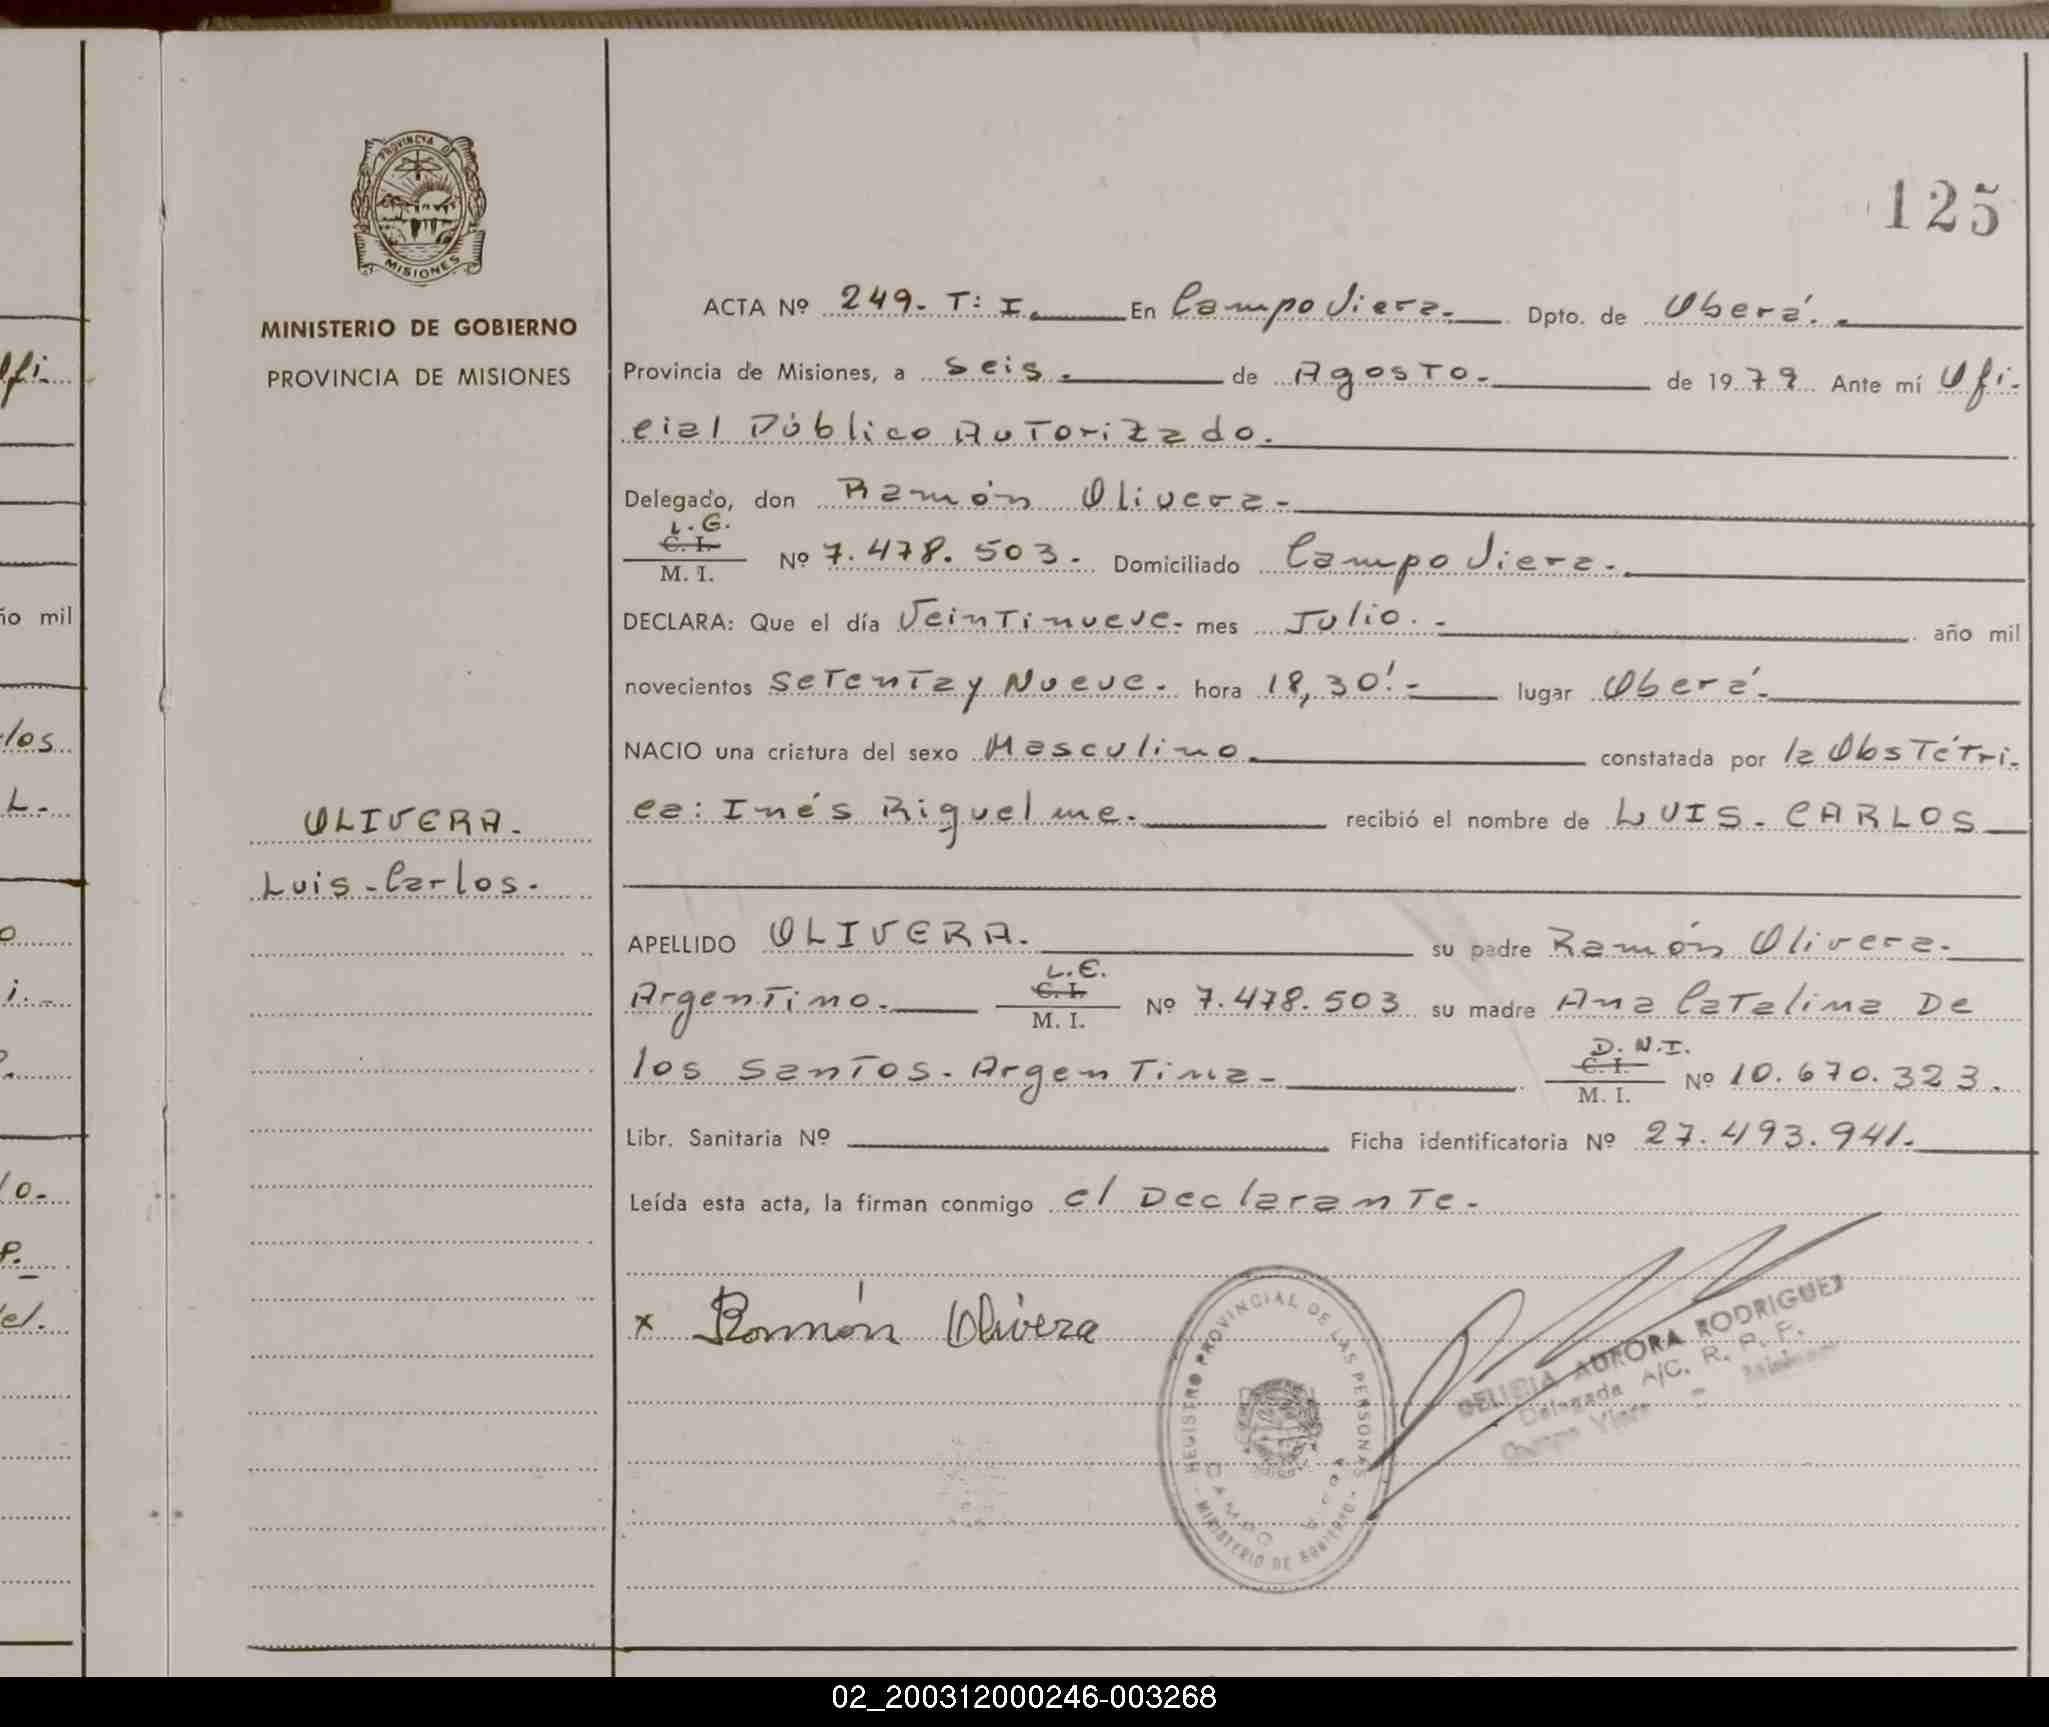 PROVINCIA D
MISIONES
MINISTERIO DE GOBIERNO
PROVINCIA DE MISIONES
OLIVERA.
Luis-Carlos.
125
ACTA Nº 249. T: I. En Campo Viera. Dpto. de Oberá.
Provincia de Misiones, a Seis. de Agosto. de 1979 Ante mí Ofi-
cial Público Autorizado.
Delegado, don Ramón Olivera-
C. I. L.E.
M. I. Nº 7.478.503. Domiciliado Campo Viera.
DECLARA: Que el día Veintinueve. mes Julio. año mil
novecientos Setenta y Nueve. hora 18,30'. lugar Oberá.
NACIO una criatura del sexo Masculino. constatada por la Obstétri-
ca: Inés Riquelme. recibió el nombre de LUIS-CARLOS
APELLIDO OLIVERA. su padre Ramón Olivera.
Argentino. L.E. C. I. M. I. Nº 7.478.503 su madre Ana Catalina De
los Santos. Argentina- D.N.I. C. I. M. I. Nº 10.670.323.
Libr. Sanitaria Nº Ficha identificatoria Nº 27.493.941.
Leída esta acta, la firman conmigo el Declarante.
x Ramón Olivera
REGISTRO PROVINCIAL DE LAS PERSONAS
MINISTERIO DE GOBIERNO
CAMPO
DELICIA AURORA RODRIGUEZ
Delegada A/C. R. P. P.
Campo Viera - Misiones
ño mil
los
L.
02_200312000246-003268